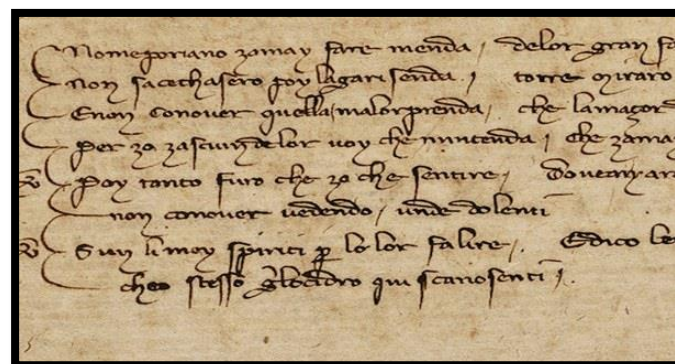 No me poriano zamay fare menda / delor gran fa
Non sacechasero poy lagarisenda / torre miraro
Enon conover quella / malorprenda / che lamaçor
Per zo zascun delor voy che mintenda / che zamay
Poy tanto furo che zo che sentire / doveanyara
non conover vedendo / unde dolenti
Sun li mey spiriti p lo lor falire / Edico be
cheo stesso glocidro qui scanosenti /